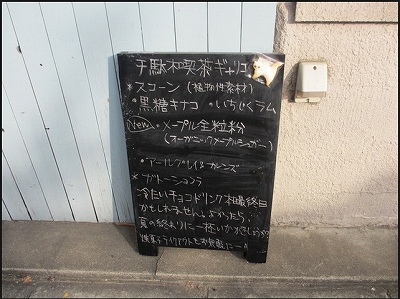 千駄木喫茶ギャリコ
*スコーン(植物性素材)
・黒糖キナコ ・いちじくラム
New ・メープル全粒粉
(オーガニックメープルシュガー)
・アールグレイ&カレンズ
*ガトーショコラ
冷たいチョコドリンク本日最終日
かもしれません。よかったら、
夏の終わりに一杯いかがでしょうか?
焼菓子テイクアウトもお気軽に〜!